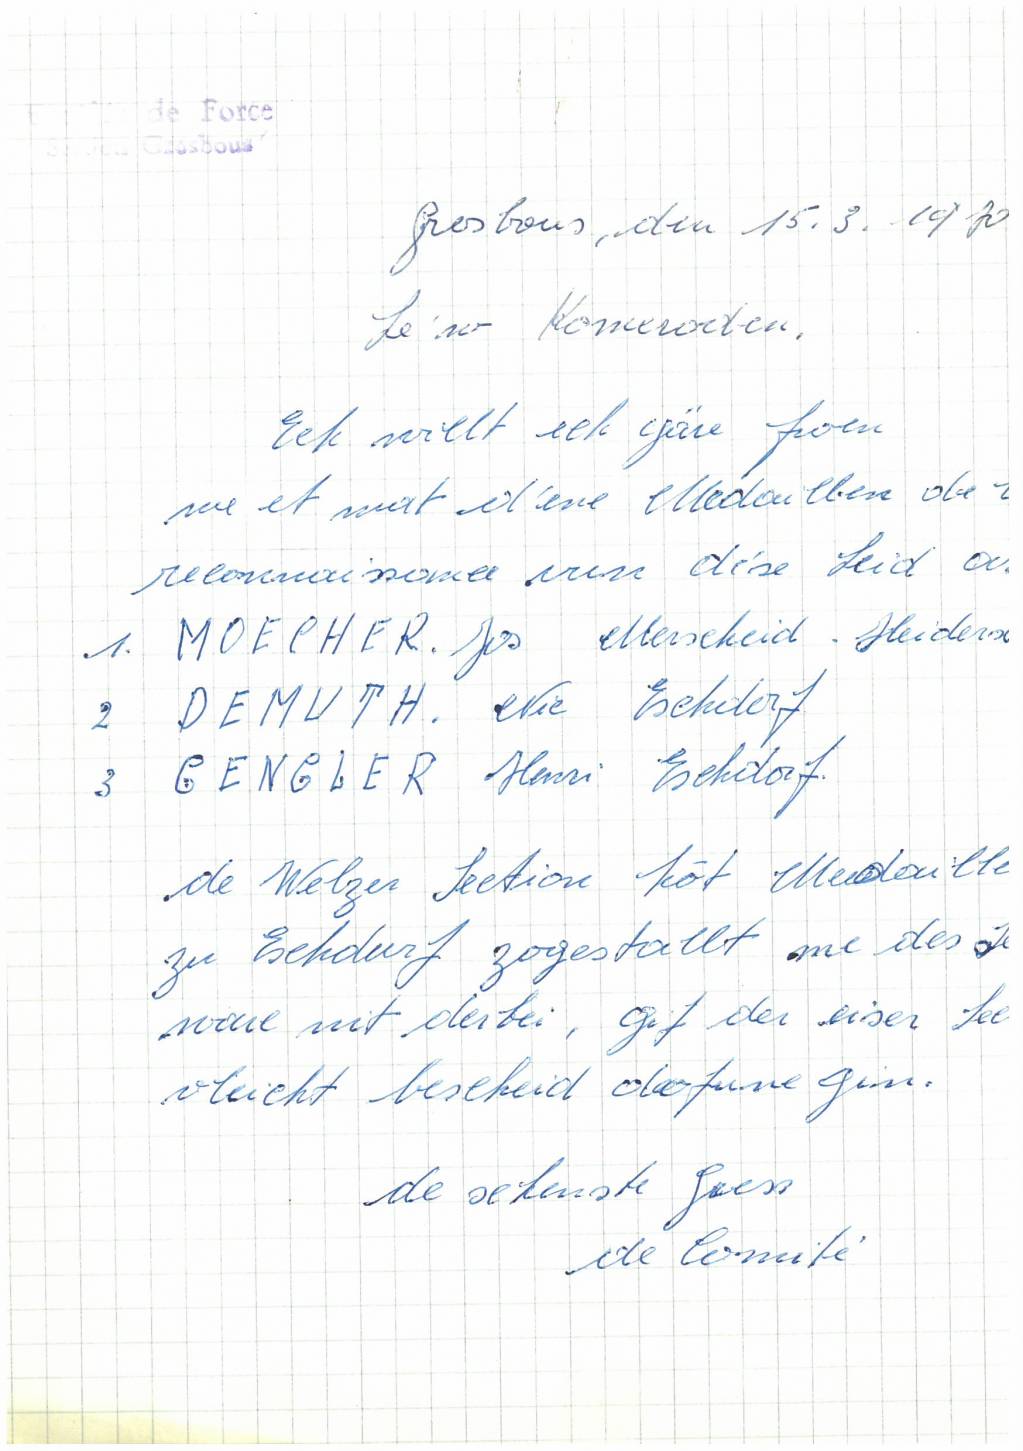 de Force
Grosbous
Grosbous, den 15.3.1970
Le'w Komeroden.
Eck willt ech gäre froen
we et mat d'ene Medaillen de
reconnaissance vun dése Leid
1. MOECHER. Jos Merscheid. Heiders
2 DEMUTH. Nic Eschdorf
3 GENGLER Henri Eschdorf.
de Welzer Section hôt Medaille
zu Eschdorf zogestallt me des
ware nit derbei, gif der eiser Sec
vleicht bescheid dofune gin.
de schenste Gress
de Comité